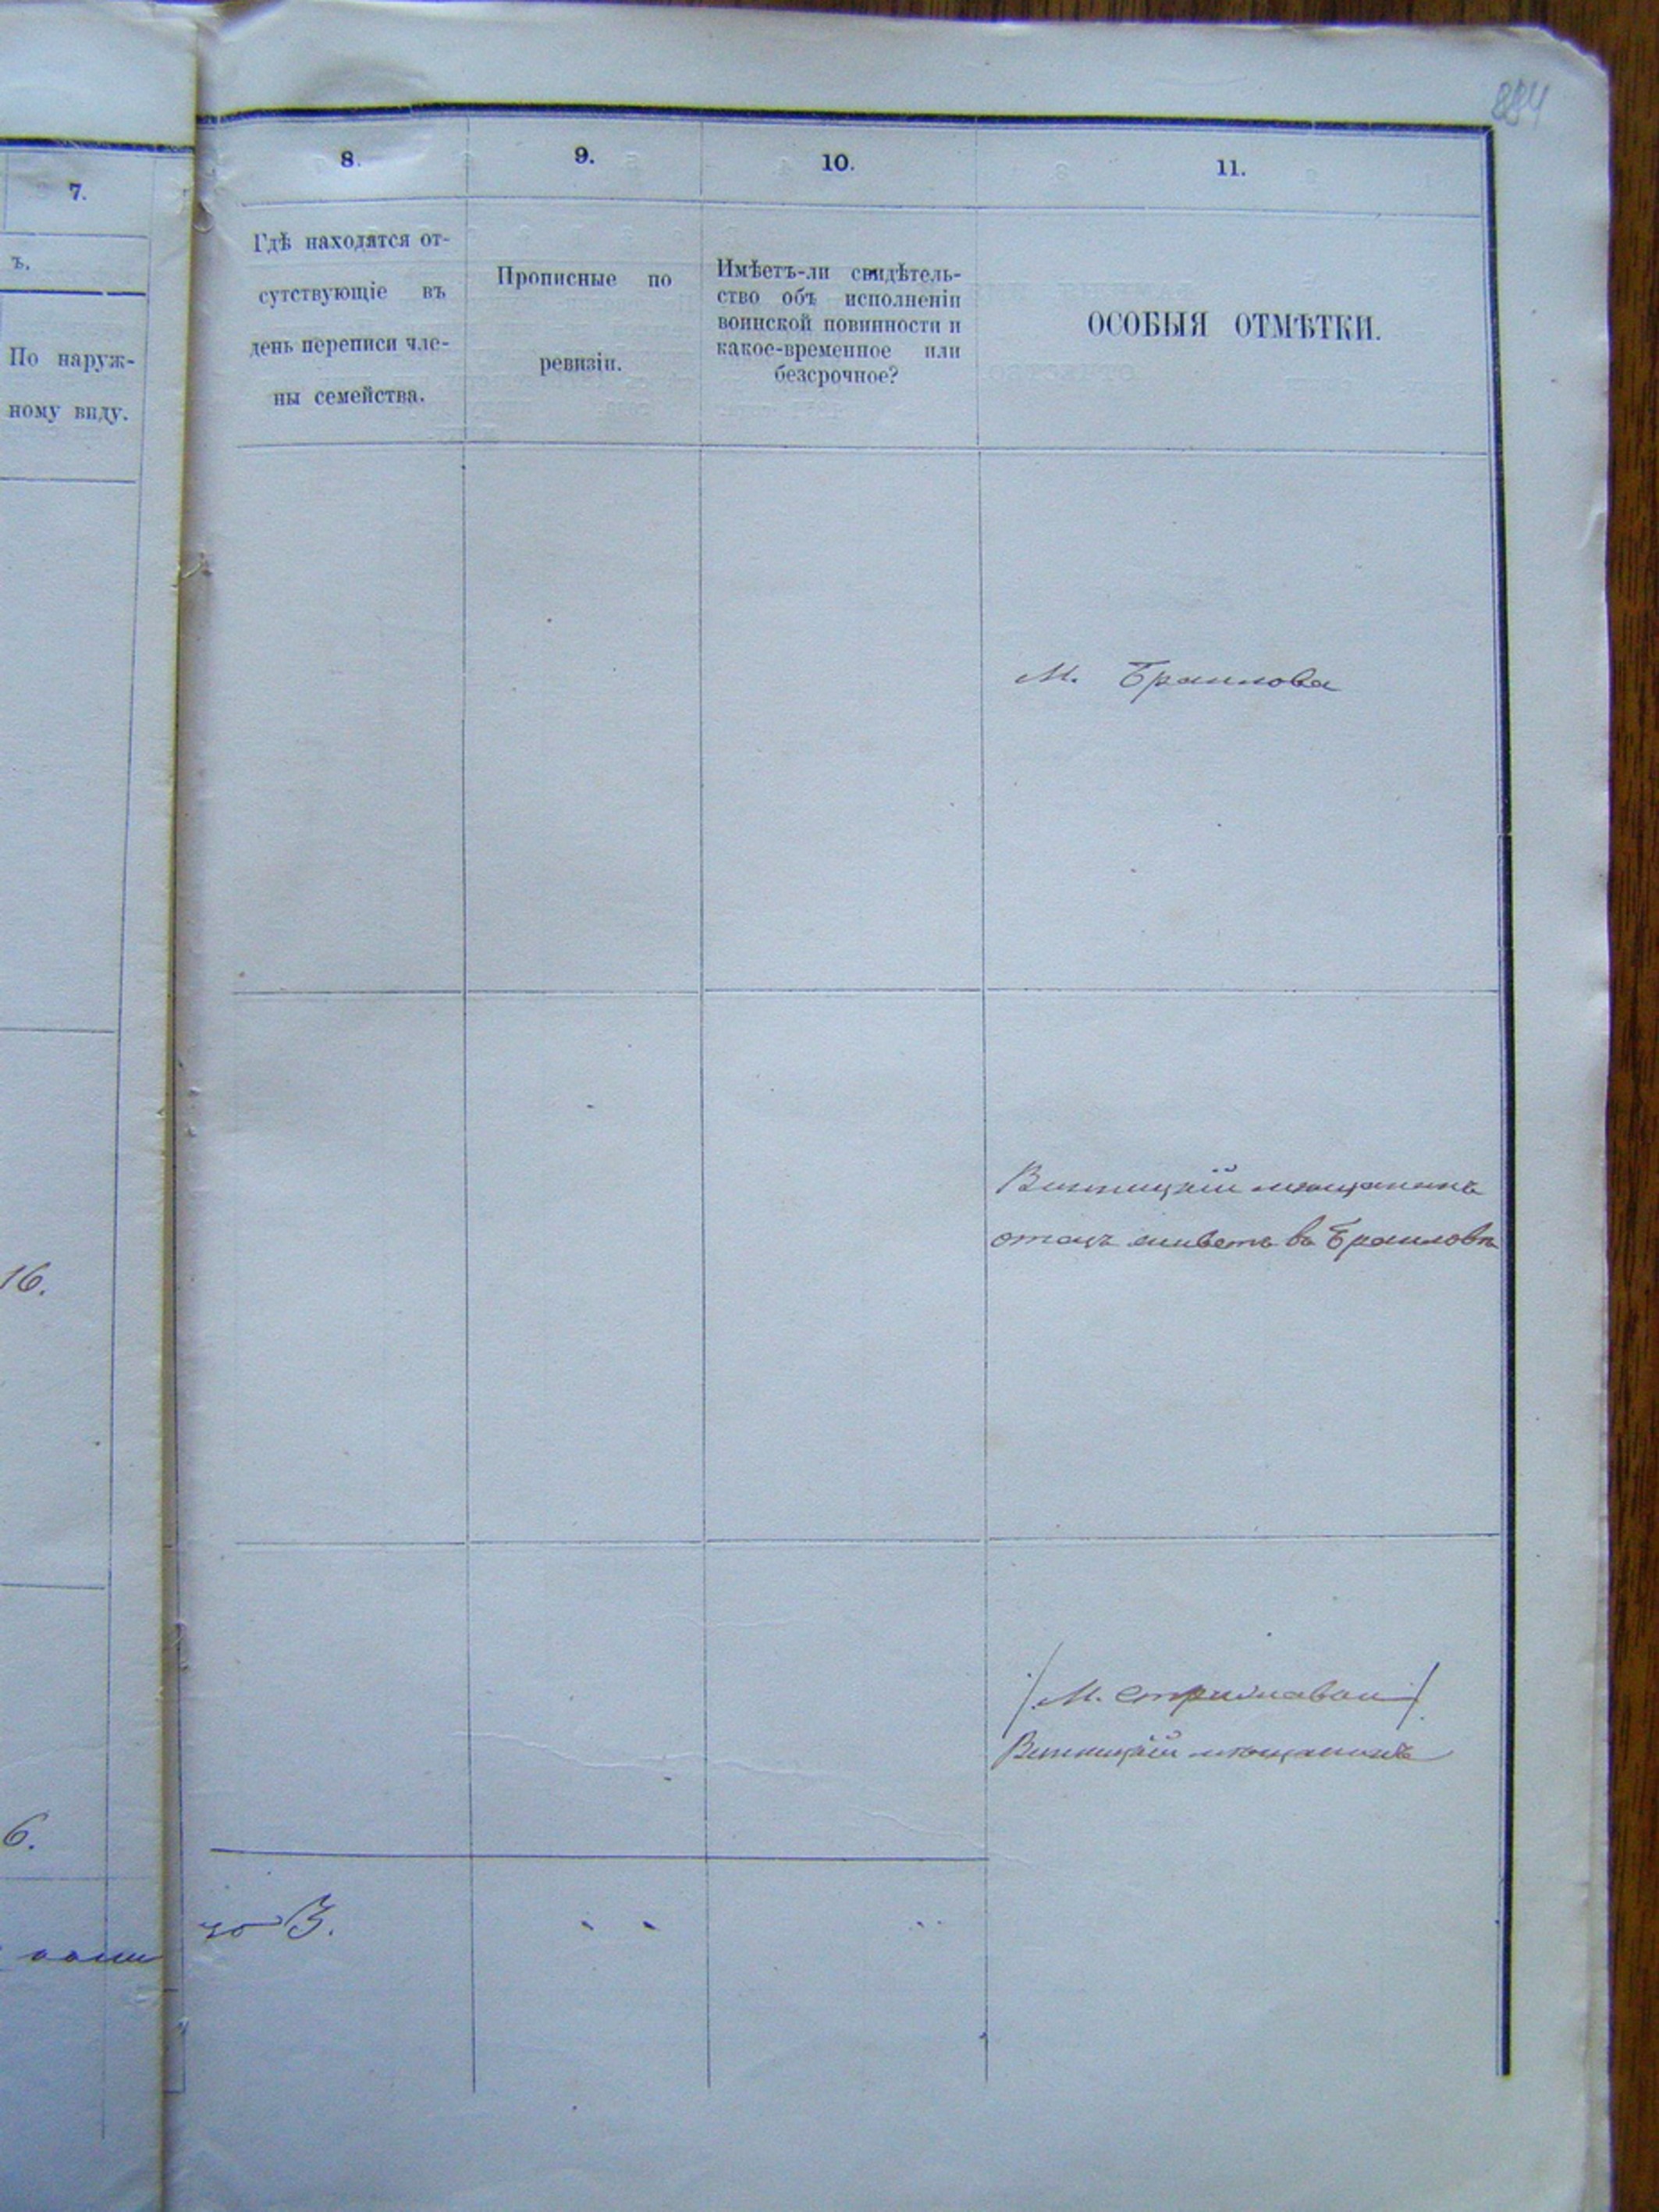 884
7.
8.
9.
10.
11.
ъ.
По наруж-
ному виду.
Гдѣ находятся от-
сутствующіе въ
день переписи чле-
ны семейства.
Прописные по
ревизіи.
Имѣетъ-ли свидѣтель-
ство объ исполненіи
воинской повинности и
какое-временное или
безсрочное?
ОСОБЫЯ ОТМѢТКИ.
М. Браилова
16.
Винницкій мѣщанинъ
отецъ живетъ въ Браиловѣ
М.
Винницкій мѣщанинъ
6.
3.